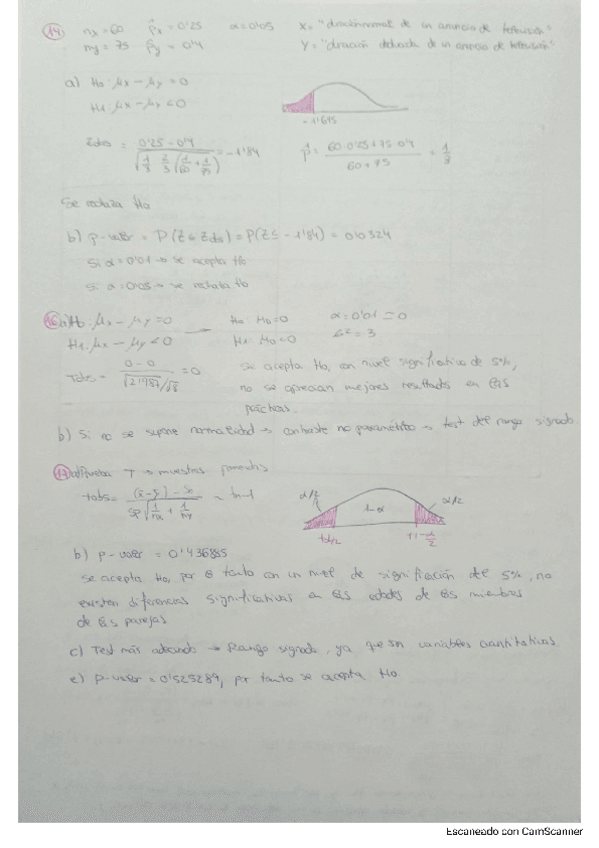 14) nx=60 p̂x=0'25 α=0'05 X="duración normal de un anuncio de televisión"
ny=75 p̂y=0'4 Y="duración de un anuncio de televisión"
a) H0: μx-μy=0
H1: μx-μy<0
-1'645
Zobs = (0'25-0'4)/√(1/3·2/3(1/60+1/75)) = -1'84 p̂ = (60·0'25+75·0'4)/(60+75) = 1/3
Se rechaza H0
b) p-valor = P(Z≤Zobs) = P(Z≤-1'84) = 0'0324
Si α=0'01 → se acepta H0
Si α=0'05 → se rechaza H0
a) H0: μx-μy=0 → H0: μD=0 α=0'01
H1: μx-μy<0 H1: μD<0
Tobs = (0-0)/(√2'1987/√8) = 0 se acepta H0, con nivel significativo de 5%,
no se aprecian mejores resultados en las
prácticas.
b) Si no se supone normalidad → contraste no paramétrico → test del rango signado
17) a) Prueba T → muestras pareadas
tobs = ((x̄-ȳ)-δ)/(sp√(1/nx+1/ny)) ~ tn-1
α/2 1-α α/2
b) p-valor = 0'436885
se acepta H0, por lo tanto con un nivel de significación del 5%, no
existen diferencias significativas en las edades de los miembros
de las parejas
c) Test más adecuado → Rango signado, ya que son variables cuantitativas
e) p-valor = 0'525289, por tanto se acepta H0
Escaneado con CamScanner